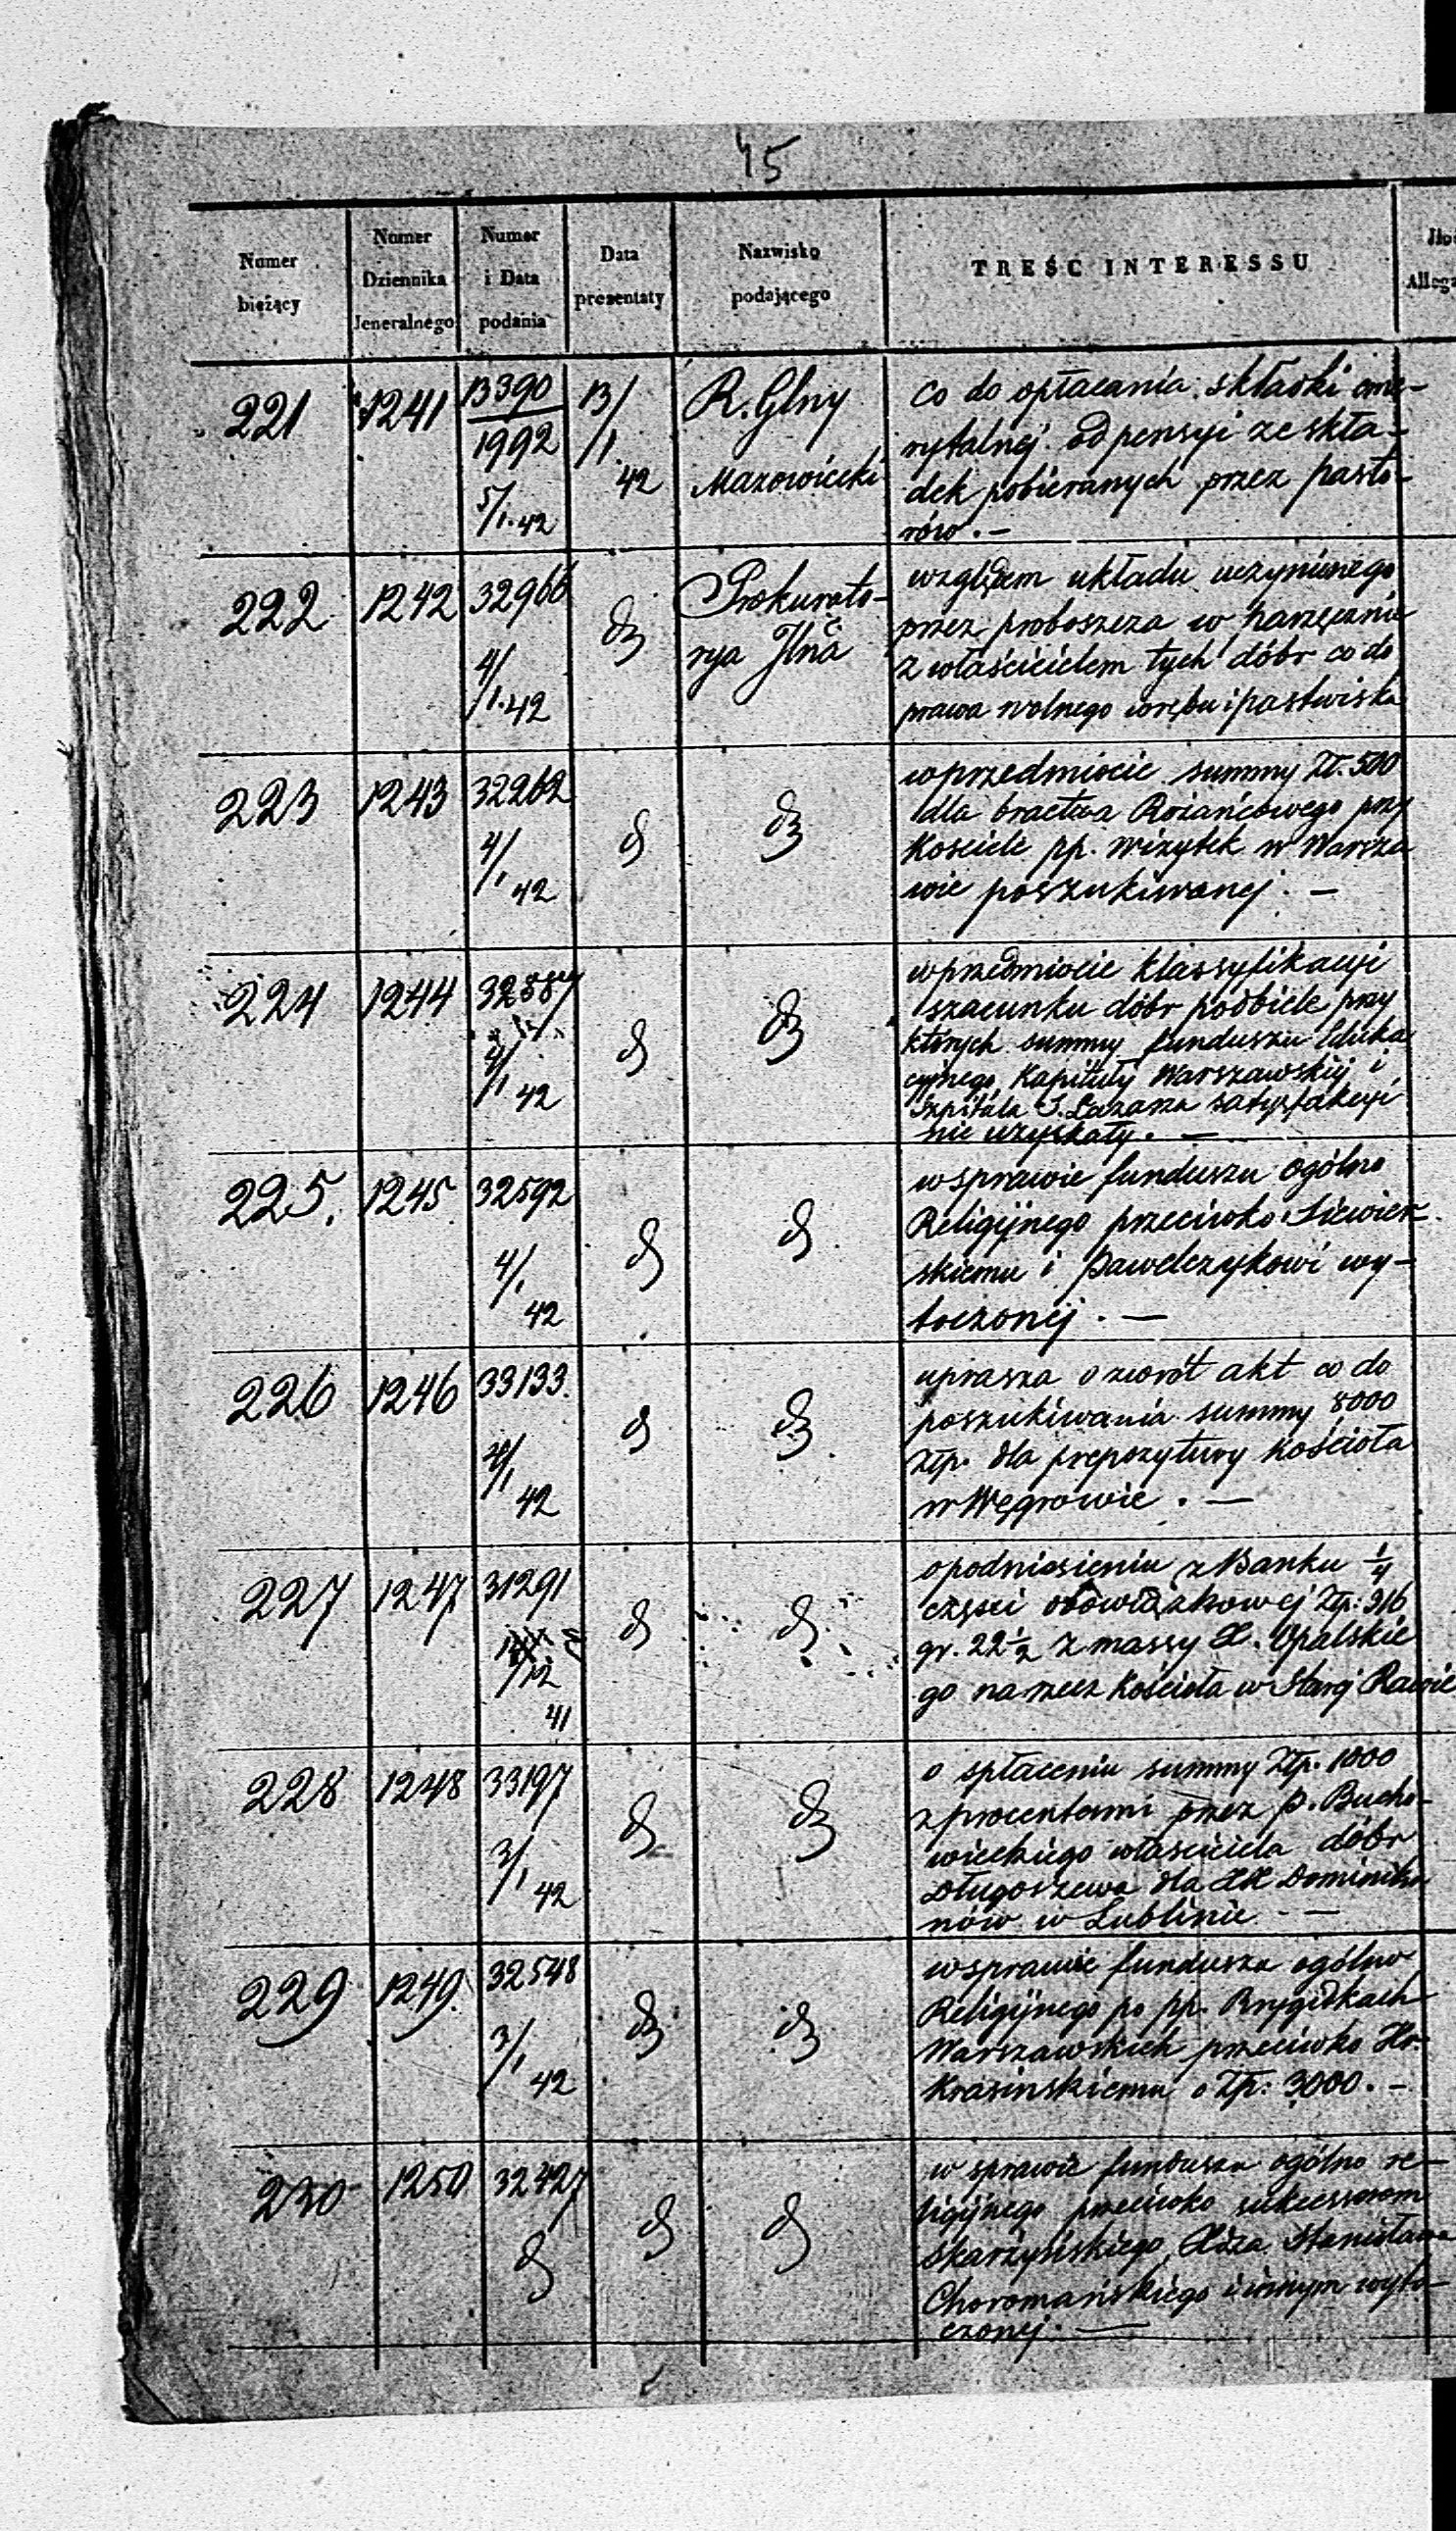 45
Numer bieżący
Numer Dziennika Jeneralnego
Numer i Data podania
Data prezentaty
Nazwisko podającego
TREŚĆ INTERESSU
221 1241 13390 13/ R. Glny co do opłacania składki eme-
1992 /1. Mazowiecki rytalnej od pensyi ze skła-
5/1. 42 42 dek pobieranych przez pasto-
rów. —
222 1242 32966 Prokurato- względem układu uczynionego
4/1. 42 rya Jlna przez proboszcza w
z właścicielem tych dóbr co do
prawa wolnego wrębu i pastwiska
223 1243 32262 w przedmiocie summy Zł. 500
4/1 42 dla bractwa Rożańcowego przy
Kosciele pp. Wizytek w Warsza
wie poszukiwanej. —
224 1244 32887 w przedmiocie klassyfikacyi
4/1 42 szacunku dóbr podbiele przy
których summy funduszu Eduka
cyjnego, Kapituły Warszawskiej i
Szpitala S. Łazarza satysfakcyi
nie uzyskały. —
225. 1245 32592 w sprawie funduszu ogólno
4/1 42 Religijnego przeciwko Siewier
skiemu i Pawelczykowi wy-
toczonéj. —
226 1246 33133. uprasza o zwrót akt co do
4/1 42 poszukiwania summy 8000
Złp. dla prepozytury Kościoła
w Węgrowie. —
227 1247 31291 o podniesieniu z Banku 1/4
/12 41 części obowiązkowej Złp. 316
gr. 22 1/2 z massy X. Opalskie
go na rzecz Kościoła w Starej Rawie
228 1248 33197 o spłaceniu summy Złp. 1000
3/1 42 z procentami przez p. Bucho-
wieckiego właściciela dóbr
Długoszewa dla XX Dominika
nów w Lublinie —
229 1249. 32548 w sprawie fundusza ogólno
3/1 42 Religijnego po pp. Brygidkach
Warszawskich przeciwko Hr.
Krasinskiemu o Złp: 3000. —
230 1250 32427 w sprawie fundusza ogólno re-
ligijnego przeciwko sukcessorom
Skarżyńskiego, Xdza Stanisława
Choromańskiego i innym wyto-
czonej. —